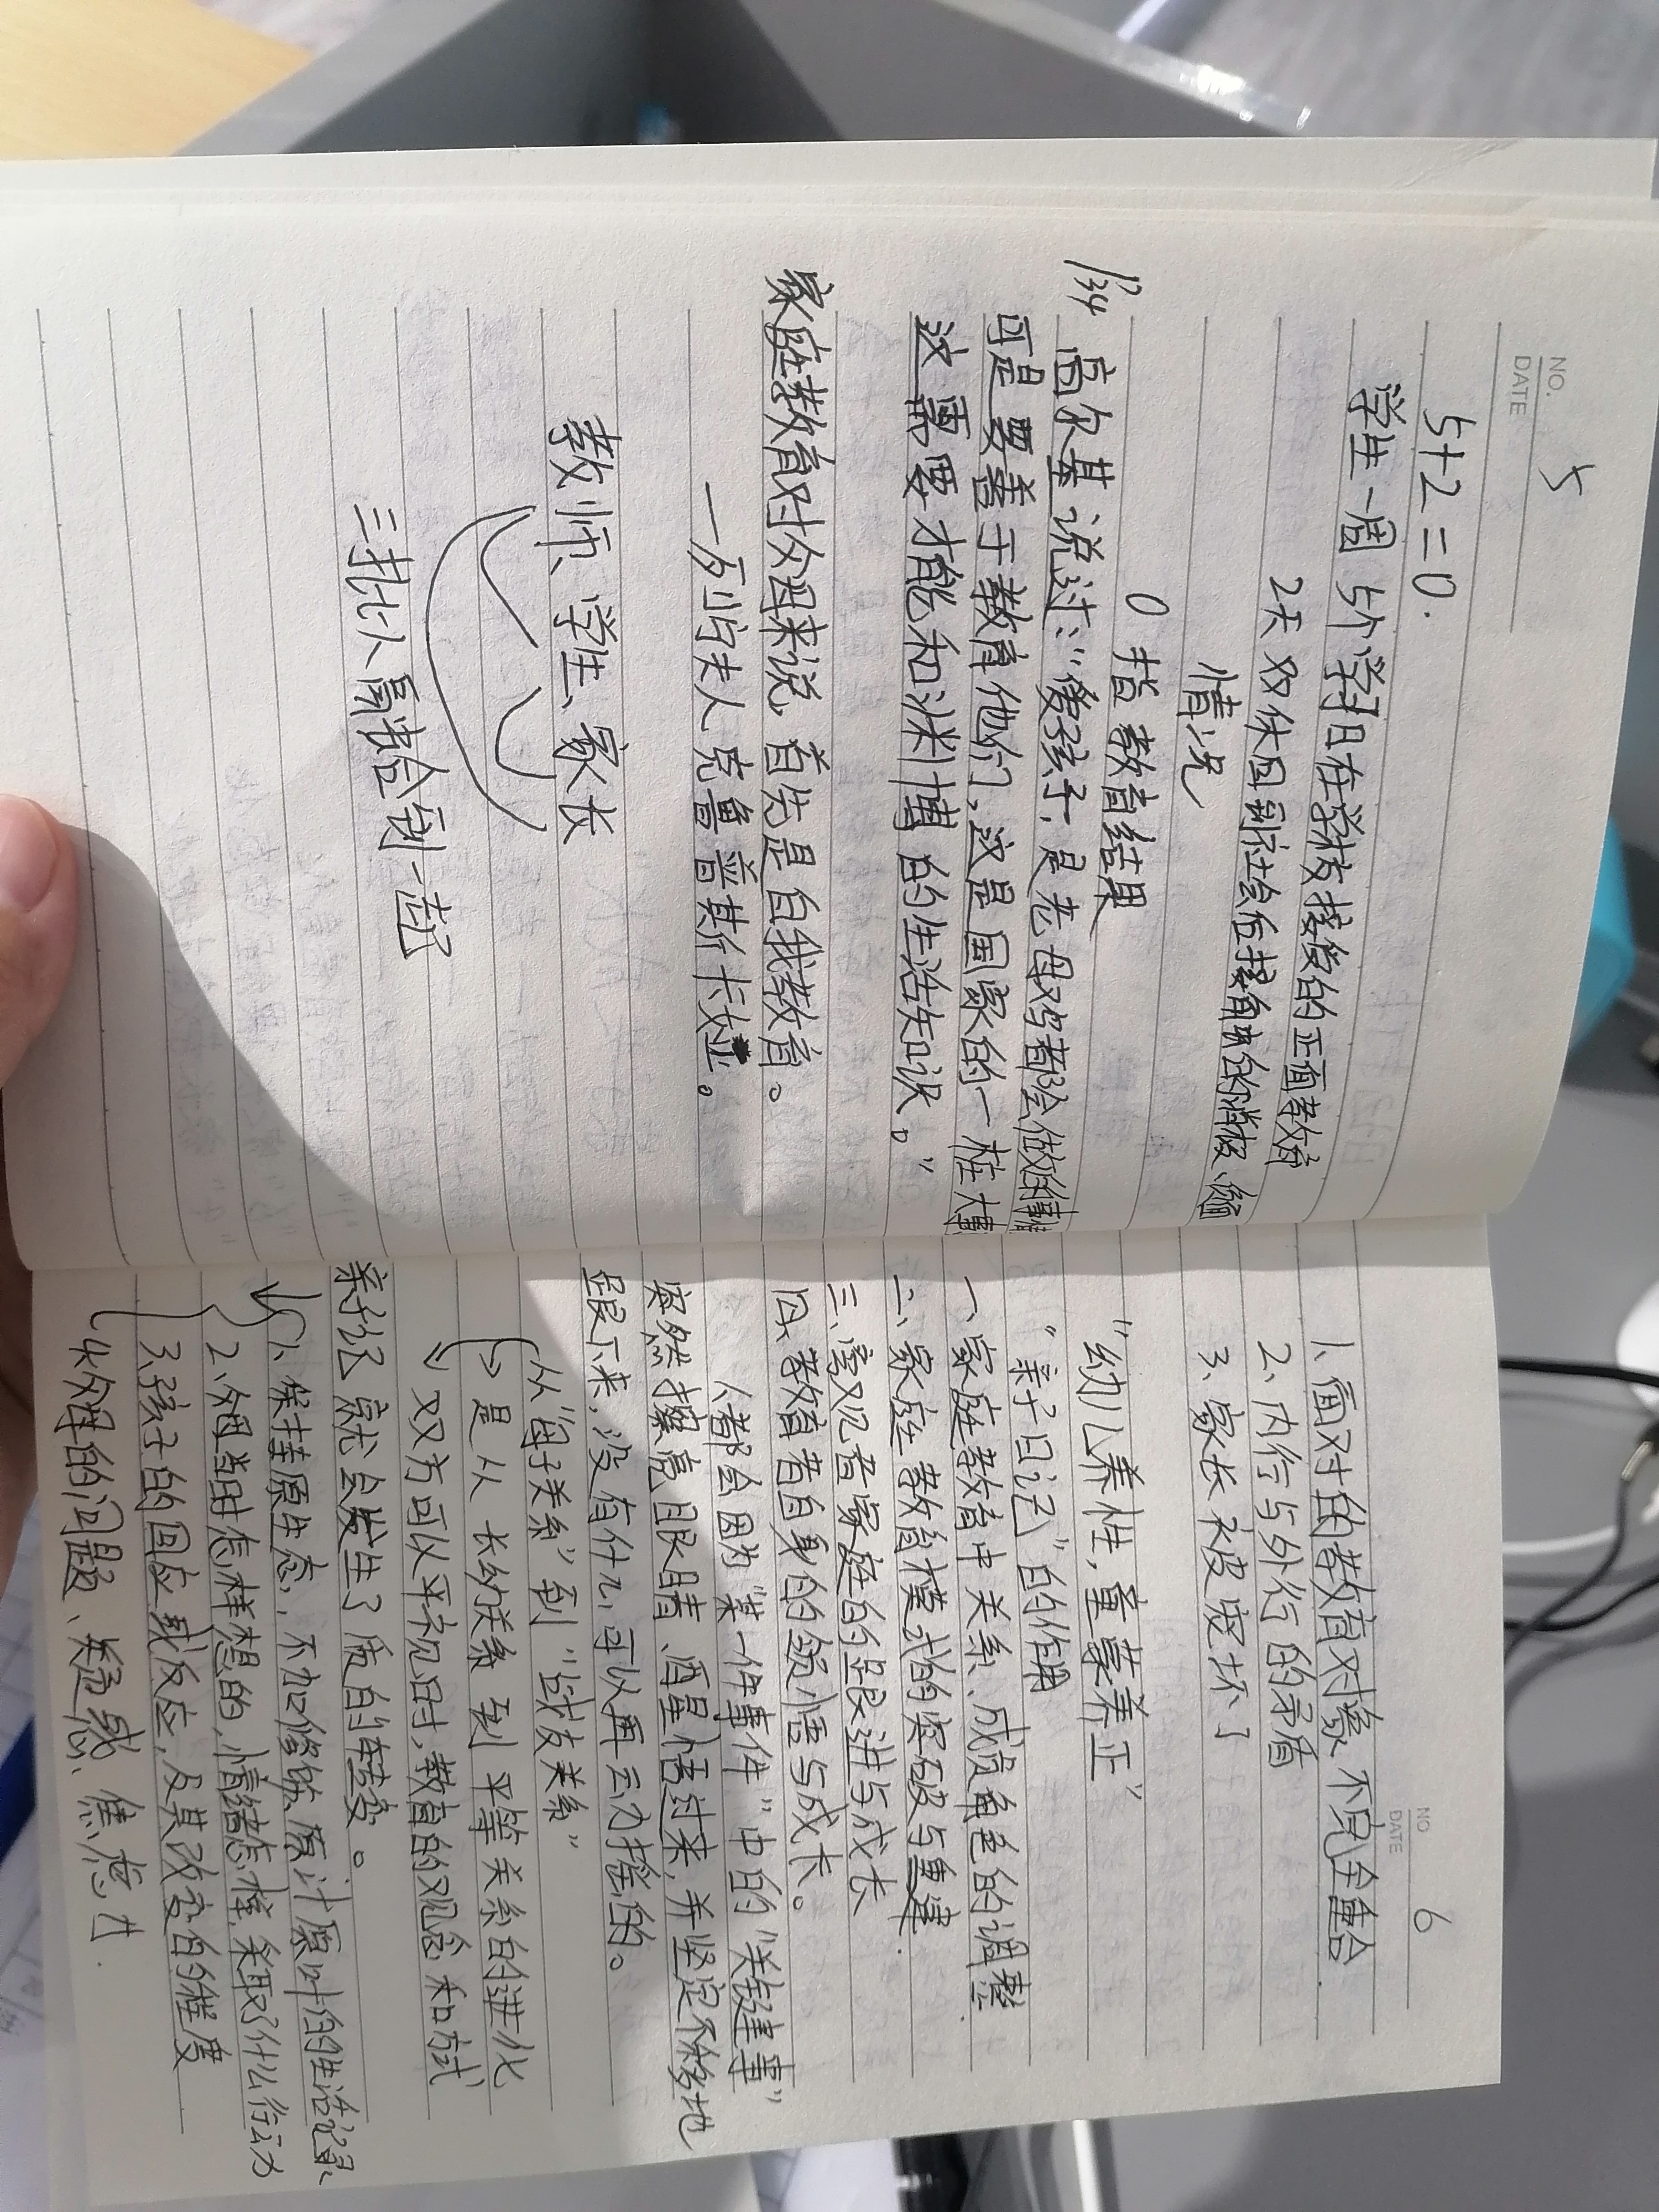 NO. 5
DATE
5+2=0.
学生一周 5个学习日在学校接受的正面教育
2天双休回到社会后接触的消极、负面
情况
0 指教育结果
P34 高尔基说过:“爱孩子,是老母鸡都会做的事情
可是要善于教育他们,这是国家的一桩大事
这需要才能和渊博的生活知识。”
家庭教育对父母来说,首先是自我教育。
—列宁夫人克鲁普斯卡娅。
教师、学生、家长
三批人需整合到一起
NO 6
DATE
1、面对的教育对象不完全重合.
2、内行与外行的矛盾
3、家长被宠坏了
“幼儿养性,童蒙养正”
“亲子日记”的作用
一、家庭教育中关系、成员角色的调整
二、家庭教育模式的突破与重建.
三、旁观者家庭的跟进与成长
四、教育者自身的领悟与成长。
人都会因为“某一件事件”中的“关键事”
突然擦亮眼睛、酒星悟过来,并坚定不移地
跟下来,没有什么可以再去力摇的。
从“母子关系”到“战友关系”
是从 长幼关系 到 平等关系的进化
双方可以平视时,教育的观念和方式
就会发生了质的转变。
1、保持原生态,不加修饰、原汁原叶的生活记录
2、父母当时怎样想的,情绪怎样,采取了什么行动
3、孩子的回应或反应,及其改变的维度
4、父母的问题、疑惑、焦虑才.